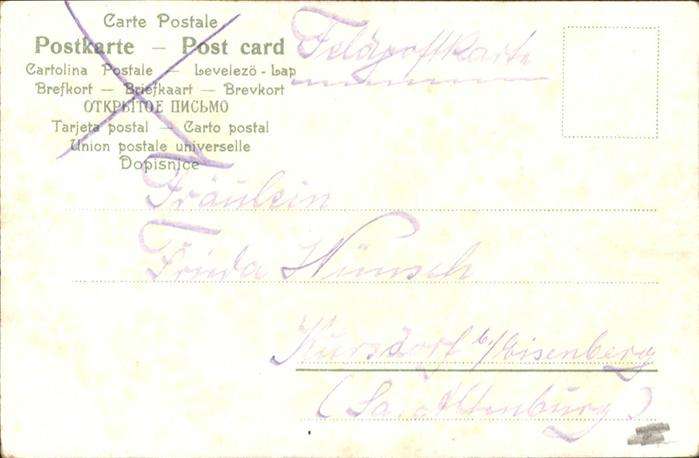 Carte Postale
Postkarte — Post card
Cartolina Postale — Levelezö-Lap
Brefkort — Briefkaart — Brevkort
ОТКРЫТОЕ ПИСЬМО
Tarjeta postal — Carto postal
Union postale universelle
Dopisnice
Feldpostkarte
Fräulein
Frieda Wünsch
Kursdorf b/Eisenberg
(Sa. Altenburg)